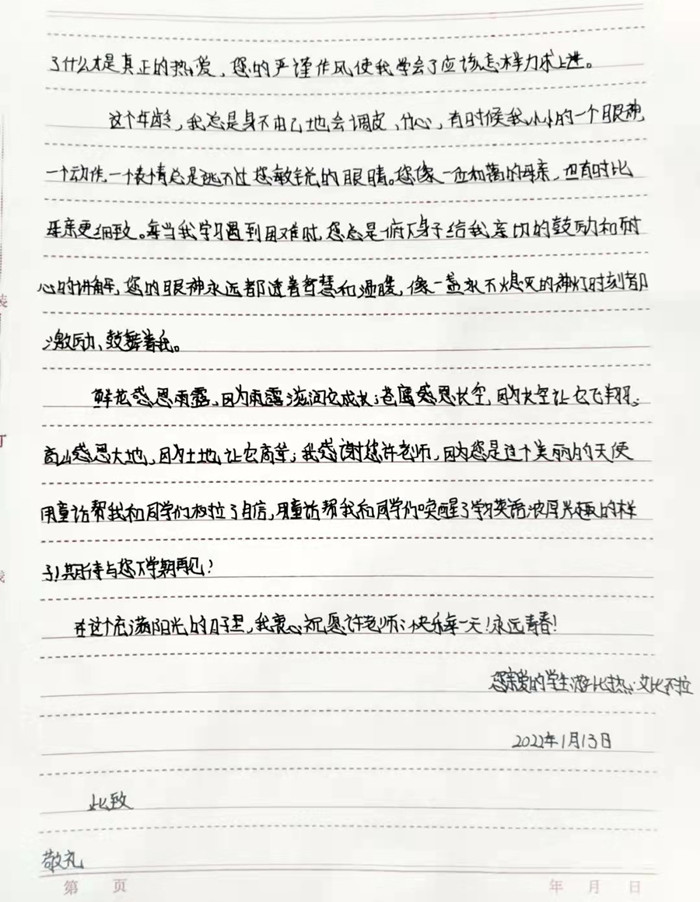 了什么才是真正的热爱，您的严谨作风使我学会了应该怎样力求上进。
这个年龄，我总是身不由己地会调皮、分心，有时候我小小的一个眼神
一个动作、一个表情总是逃不过您敏锐的眼睛。您像一位和蔼的母亲，但有时比
母亲更细致。每当我学习遇到困难时，您总是俯下身子给我亲切的鼓励和耐
心的讲解，您的眼神永远都透着智慧和温暖，像一盏永不熄灭的神灯时刻都
激励、鼓舞着我。
鲜花感恩雨露，因为雨露滋润它成长；苍鹰感恩长空，因为长空让它飞翔；
高山感恩大地，因为土地让它高耸；我感谢您许老师，因为您是这个美丽的天使
用童话帮我和同学们树立了自信，用童话帮我和同学们唤醒了学英语浓厚兴趣的样
子！期待与您下学期再见！
在这个充满阳光的日子里，我衷心祝愿许老师：快乐每一天！永远青春！
您亲爱的学生：比热·艾比不拉
2022年1月13日
此致
敬礼
第 页 年 月 日